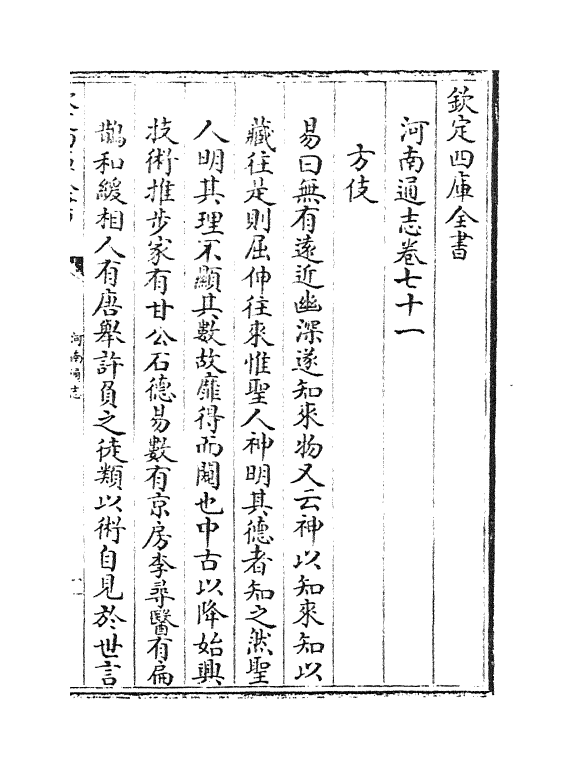 欽定四庫全書
河南通志卷七十一
方伎
易曰無有遠近幽深遂知來物又云神以知來知以
藏往是則屈伸往來惟聖人神明其德者知之然聖
人明其理不顯其數故靡得而闚也中古以降始興
技術推步家有甘公石德易數有京房李尋醫有扁
鵲和緩相人有唐舉許負之徒類以術自見於世言
河南通志